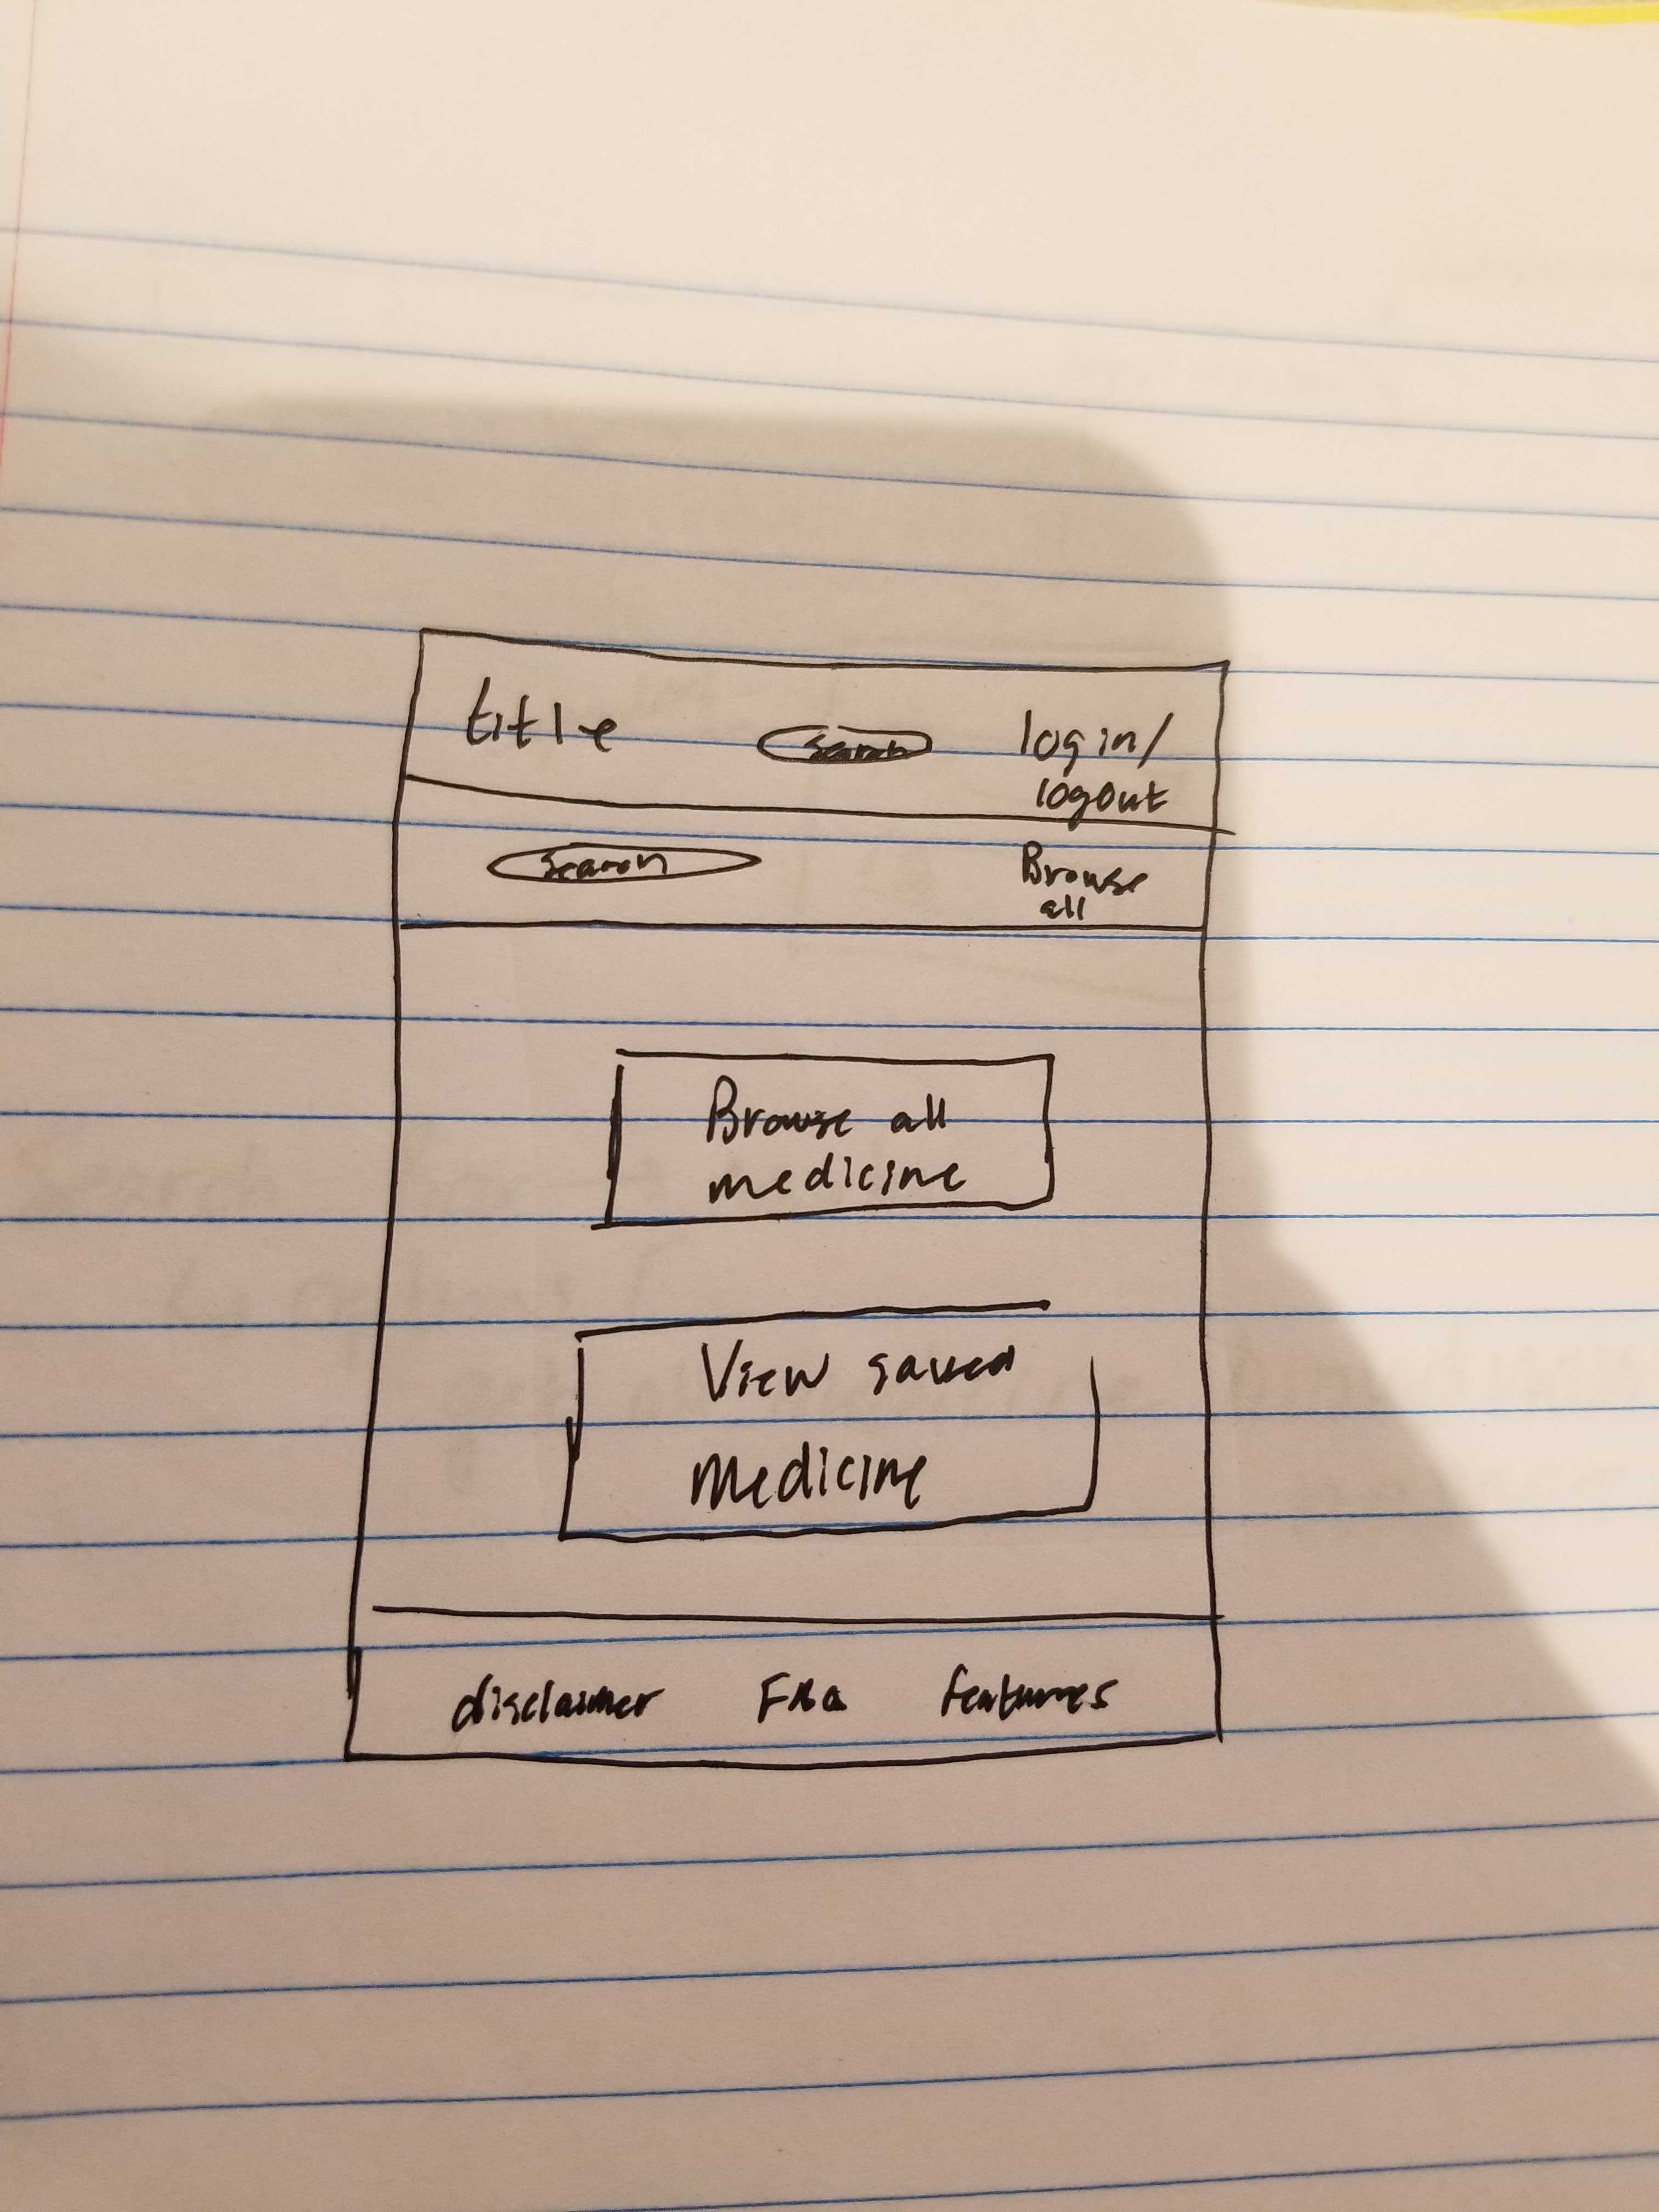 title search login/
logout
search Browse
all
Browse all
medicine
View saved
Medicine
disclaimer FAQ features